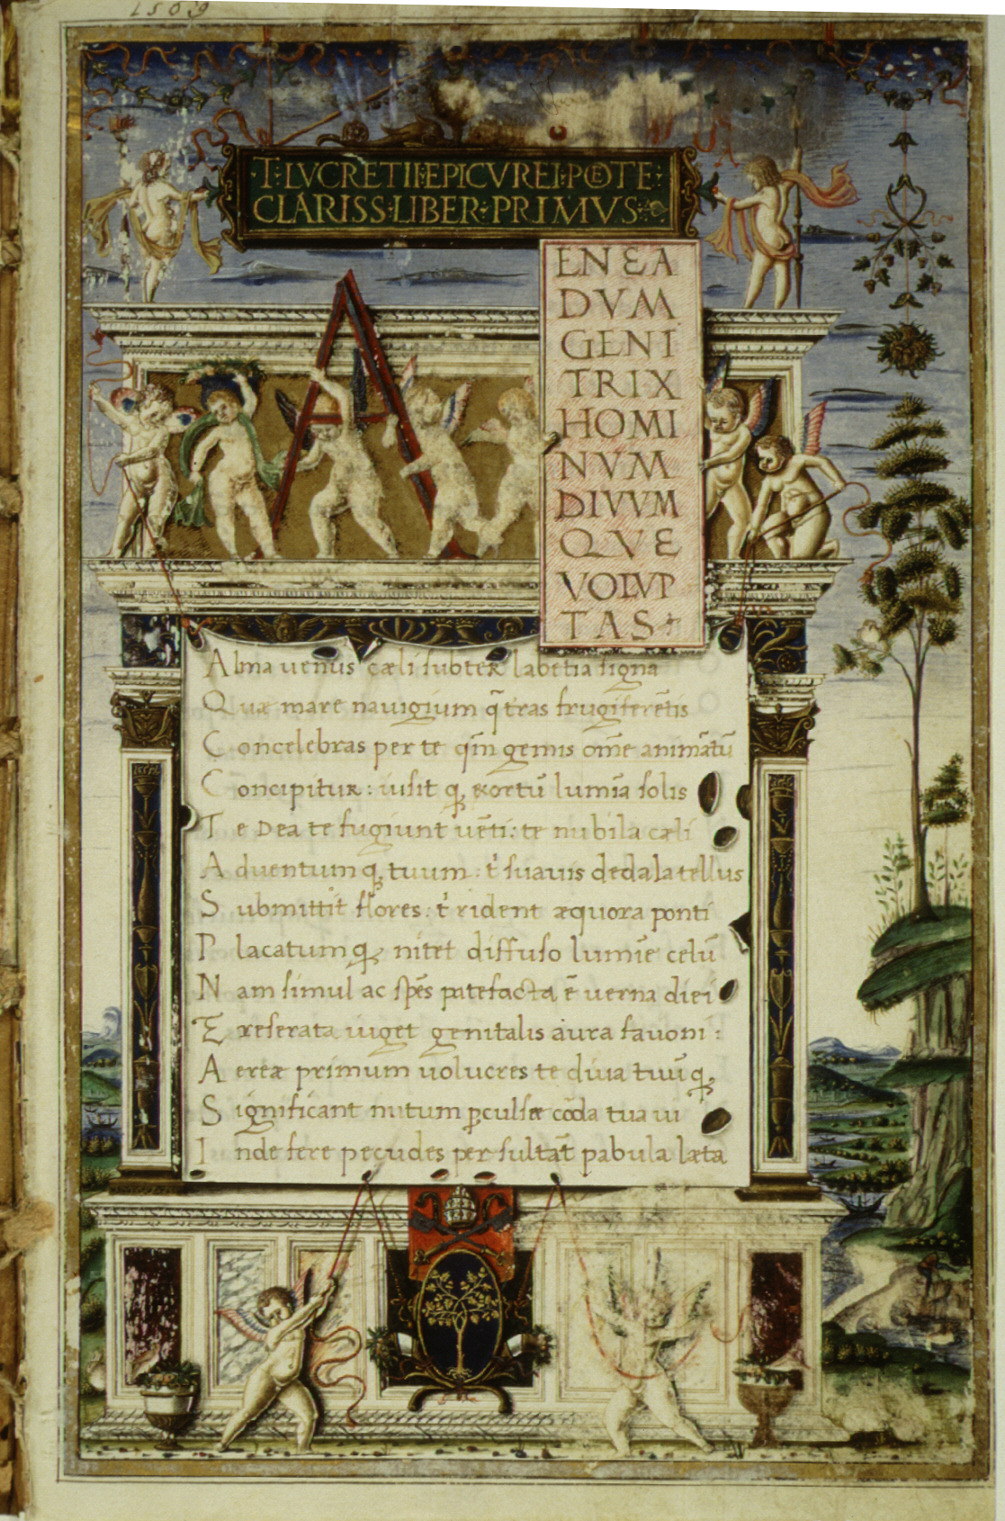 1509
T· LVCRETII· EPICVREI· POETE·
CLARISS· LIBER· PRIMVS·
A
ENEA
DVM
GENI
TRIX
HOMI
NVM
DIVVM
QVE
VOLVP
TAS
Alma uenus cæli subter labētia signa
Quæ mare nauigium q̄ tras frugiferētis
Concelebras per te qm̄ genus om̄e animātū
Concipitur: uisit q; exortū lumīa solis
Te Dea te fugiunt uēti: te nubila cæli
Aduentumq; tuum: t' suauis dedala tellus
Submittit flores: t' rident æquora ponti
Placatumq; nitet diffuso lumīe celū
Nam simul ac spēs patefacta ē uerna diei
E reserata uiget genitalis aura fauoni:
Aereæ primum uolucres te diua tuūq;
Significant initum ꝑculsæ corda tua ui
Inde fere pecudes per sultāt pabula læta